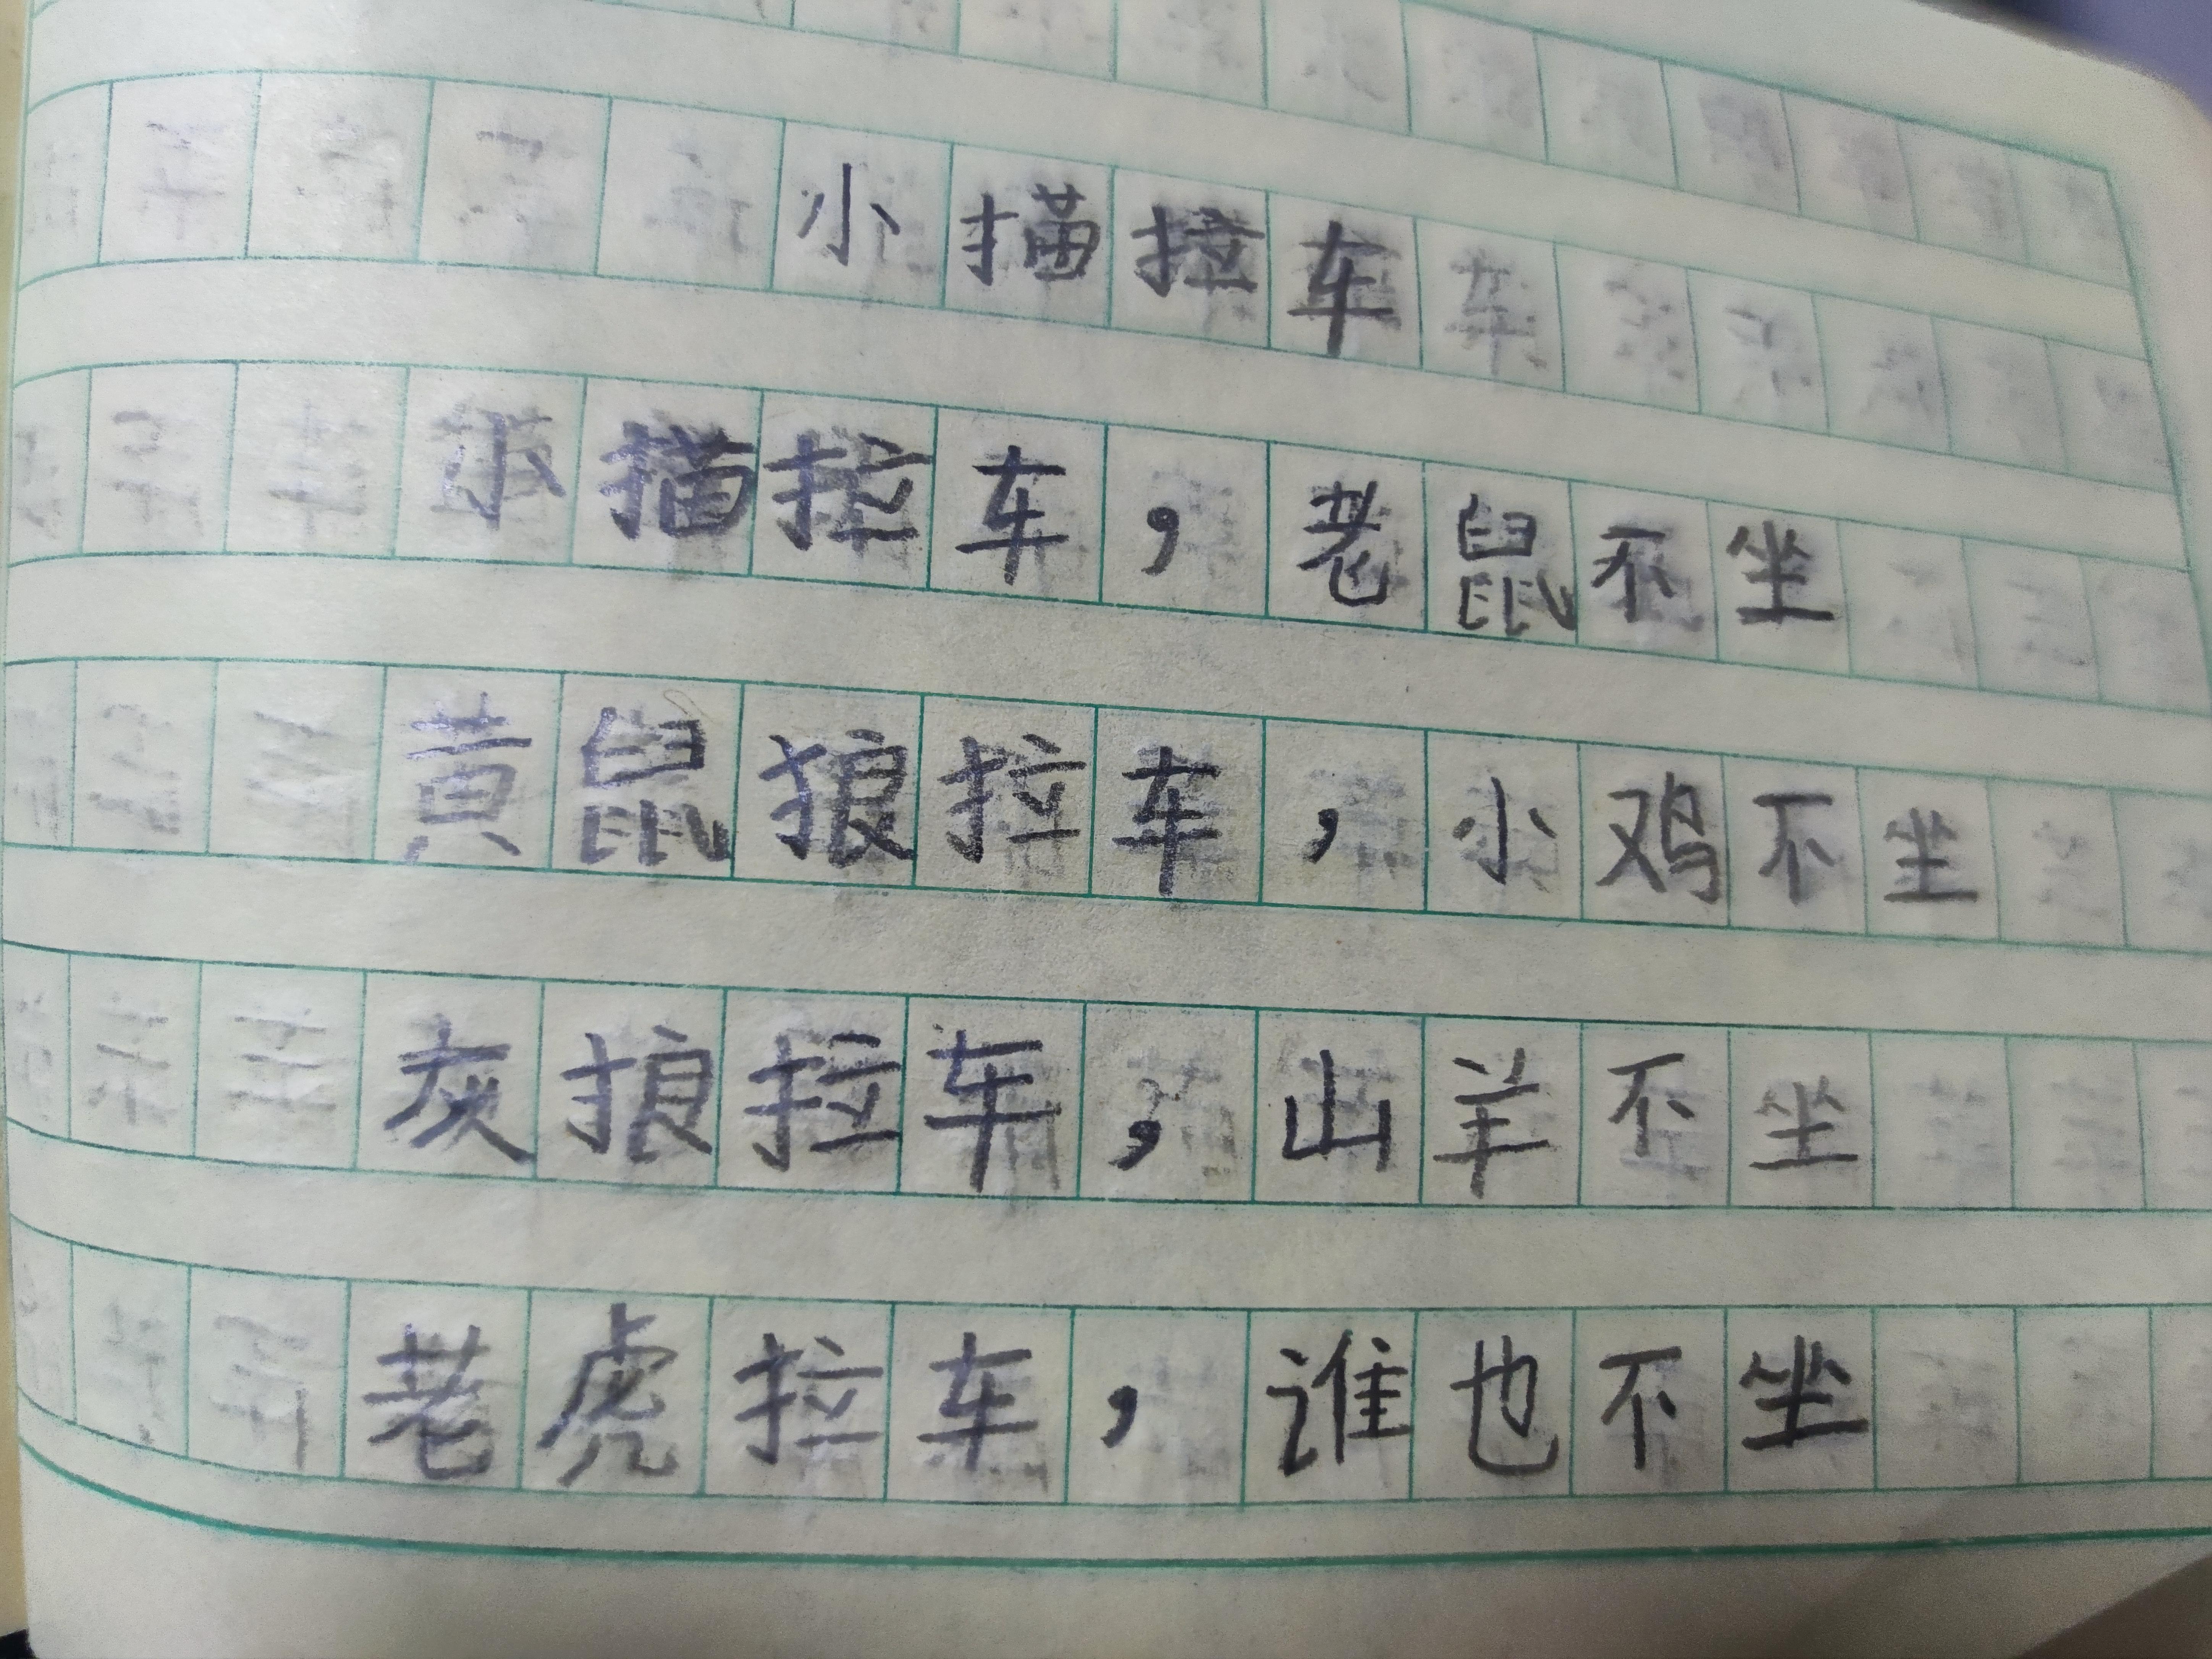 小描拉车
小描拉车，老鼠不坐
黄鼠狼拉车，小鸡不坐
灰狼拉车，山羊不坐
老虎拉车，谁也不坐